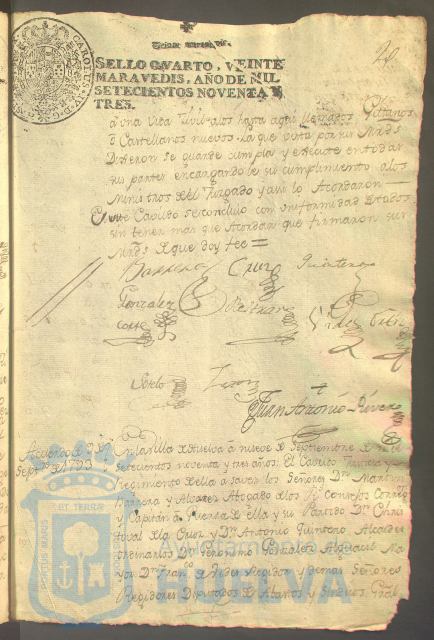 CAROLUS IV D G
28.
SELLO QVARTO, VEINTE
MARAVEDIS, AÑO DE MIL
SETECIENTOS NOVENTA Y
TRES.
á una vida civil á los hasta aqui llamados Gitanos
ó Castellanos nuevos. La que vista por sus Mrds
Dixeron se guarde cumpla y execute en todas
sus partes encargandose su cumplimiento a los
Ministros del Juzgado y asi lo Acordaron
Este Cavildo se concluió con uniformidad de todos
sin tener mas que Acordar que firmaron sus
Mrds de que doy fee =
Barrera Cruz Quintero
Gonzalez Beltran
Cotte
Soto
Juan Antonio Rivero
Acuerdo de 9 de
Sepre de 1793
En la Villa de Huelva á nueve de Septiembre de mil
Setecientos noventa y tres años: El Cavildo Justicia y
Regimiento de ella a saver los Señores Dn Martin
Barrera y Alvarez Abogado de los Rs Consejos Corregor
y Capitan á Guerra de ella y su Partido Dn Cristoval
de la Cruz y Dn Antonio Quintero Alcaldes
ordinarios Dn Geronimo Gonzalez Alguacil Mayor
Dn Franco de Rides Regidor y demas Señores
Regidores Diputados de Abastos y Sindicos Gral
PORTUS MARIS ET TERRAE CUSTODIA
Ayuntamiento de
HUELVA